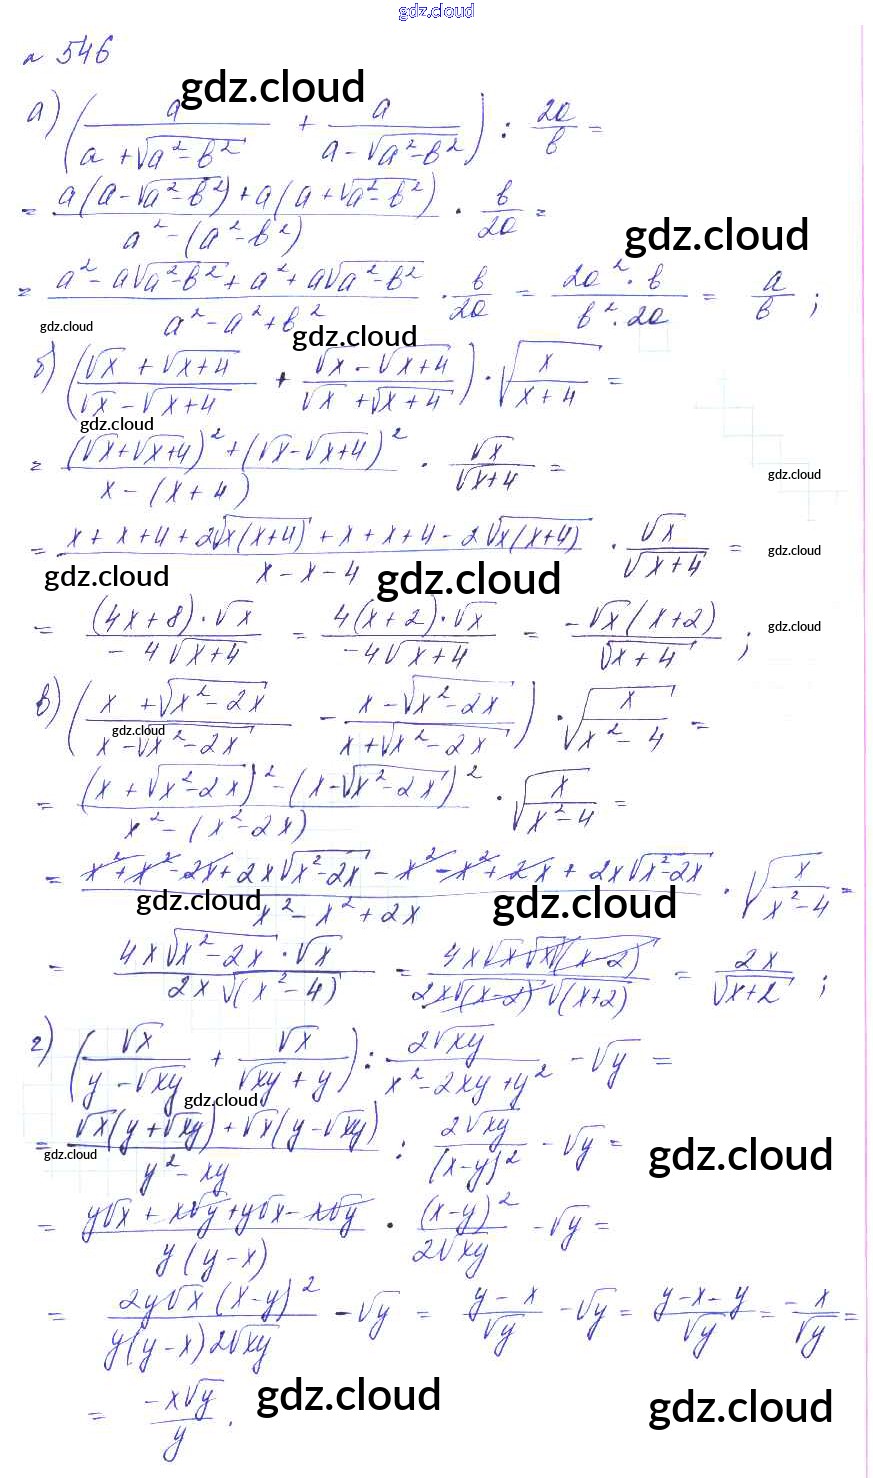 gdz.cloud
№ 546
gdz.cloud
а) (a/(a + √(a² - b²)) + a/(a - √(a² - b²))) : 2a/b =
= (a(a - √(a² - b²)) + a(a + √(a² - b²)))/(a² - (a² - b²)) · b/2a =
gdz.cloud
= (a² - a√(a² - b²) + a² + a√(a² - b²))/(a² - a² + b²) · b/2a = (2a² · b)/(b² · 2a) = a/b ;
gdz.cloud
gdz.cloud
б) ((√x + √(x+4))/(√x - √(x+4)) + (√x - √(x+4))/(√x + √(x+4))) · √(x/(x+4)) =
gdz.cloud
= ((√x + √(x+4))² + (√x - √(x+4))²)/(x - (x+4)) · √x/√(x+4) =
gdz.cloud
= (x + x + 4 + 2√(x(x+4)) + x + x + 4 - 2√(x(x+4)))/(x - x - 4) · √x/√(x+4) =
gdz.cloud
gdz.cloud
gdz.cloud
= ((4x+8) · √x)/(-4√(x+4)) = (4(x+2) · √x)/(-4√(x+4)) = (-√x(x+2))/√(x+4) ;
gdz.cloud
в) ((x + √(x² - 2x))/(x - √(x² - 2x)) - (x - √(x² - 2x))/(x + √(x² - 2x))) · √(x/(x² - 4)) =
gdz.cloud
= ((x + √(x² - 2x))² - (x - √(x² - 2x))²)/(x² - (x² - 2x)) · √(x/(x² - 4)) =
= (x² + x² - 2x + 2x√(x² - 2x) - x² - x² + 2x + 2x√(x² - 2x))/(x² - x² + 2x) · √(x/(x² - 4)) =
gdz.cloud
gdz.cloud
= (4x√(x² - 2x) · √x)/(2x√(x² - 4)) = (4x√x√x√(x-2))/(2x√(x-2)√(x+2)) = 2x/√(x+2) ;
г) (√x/(y - √xy) + √x/(√xy + y)) : 2√xy/(x² - 2xy + y²) - √y =
gdz.cloud
= (√x(y + √xy) + √x(y - √xy))/(y² - xy) : 2√xy/(x-y)² - √y =
gdz.cloud
gdz.cloud
= (y√x + x√y + y√x - x√y)/(y(y-x)) · (x-y)²/2√xy - √y =
= (2y√x(x-y)²)/(y(y-x)2√xy) - √y = (y-x)/√y - √y = (y-x-y)/√y = -x/√y =
= -x√y/y .
gdz.cloud
gdz.cloud